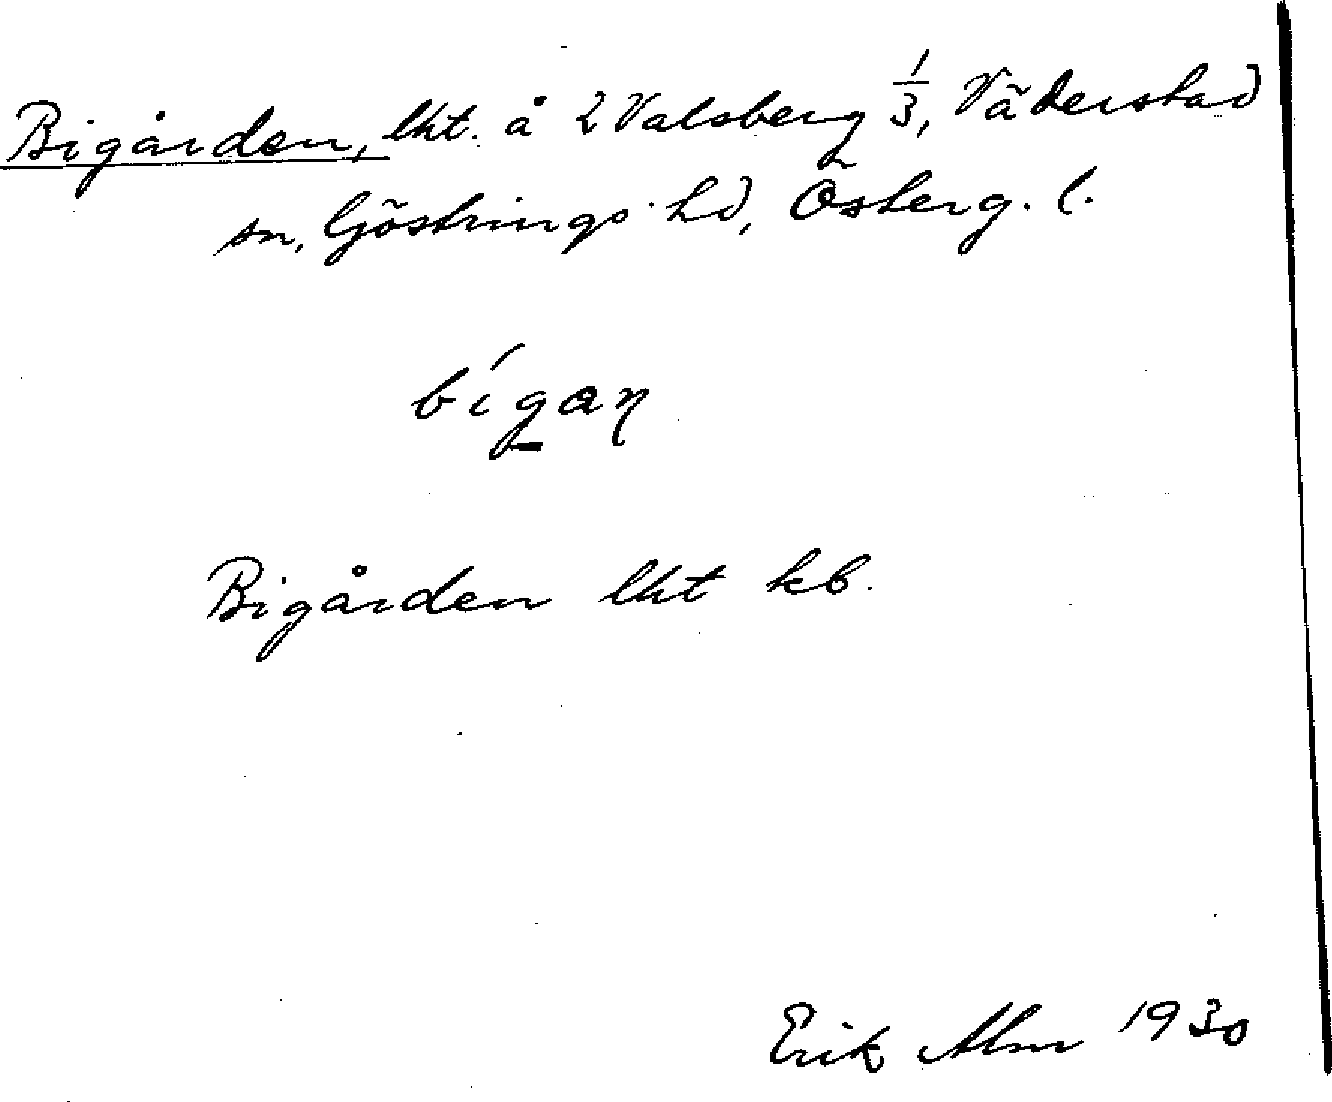 Bigården, lht. å 2 Valsberg 1/3, Väderstad
sn, Göstrings hd, Österg. l.
bígaɳ
Bigården lht kb.
Erik Alm 1930